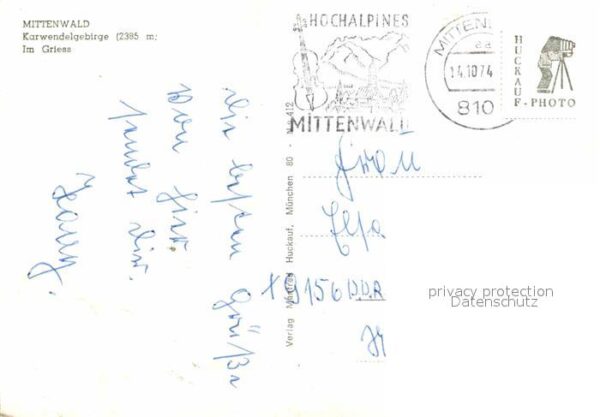 MITTENWALD
Karwendelgebirge (2385 m)
Im Griess
HOCHALPINES
MITTENWALD
MITTEN
aa
14.10.74
810
HUCKAUF-PHOTO
Verlag Manfred Huckauf, München 80 - Nr. 412
Die besten Grüße
von hier
sendet Dir
Frau
Elsa
X 9156 DDR
privacy protection
Datenschutz